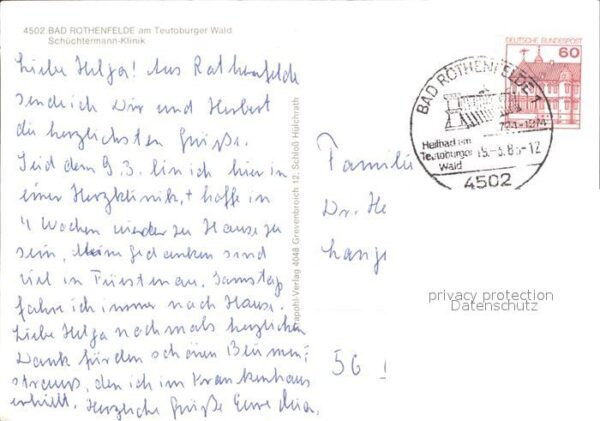 4502 BAD ROTHENFELDE am Teutoburger Wald
Schüchtermann-Klinik
Liebe Helga! Aus Rothenfelde
sende ich Dir und Herbert
die herzlichsten Grüße.
Seid dem 9.3. bin ich hier in
einer Herzklinik, + hoffe in
4 Wochen wieder zu Hause zu
sein, Meine Gedanken sind
viel in Fürstenau. Samstag
fahre ich immer nach Hause.
Liebe Helga nochmals herzlichen
Dank für den schönen Blumen=
strauss, den ich im Krankenhaus
erhielt. Herzliche Grüße Eure
Verlag 4048 Grevenbroich 12, Schloß Hülchrath
DEUTSCHE BUNDESPOST
60
BAD ROTHENFELDE 1
724-1274
Heilbad am
Teutoburger
Wald
19.-3.86-12
4502
Familie
Dr. He
Lange
56
privacy protection
Datenschutz